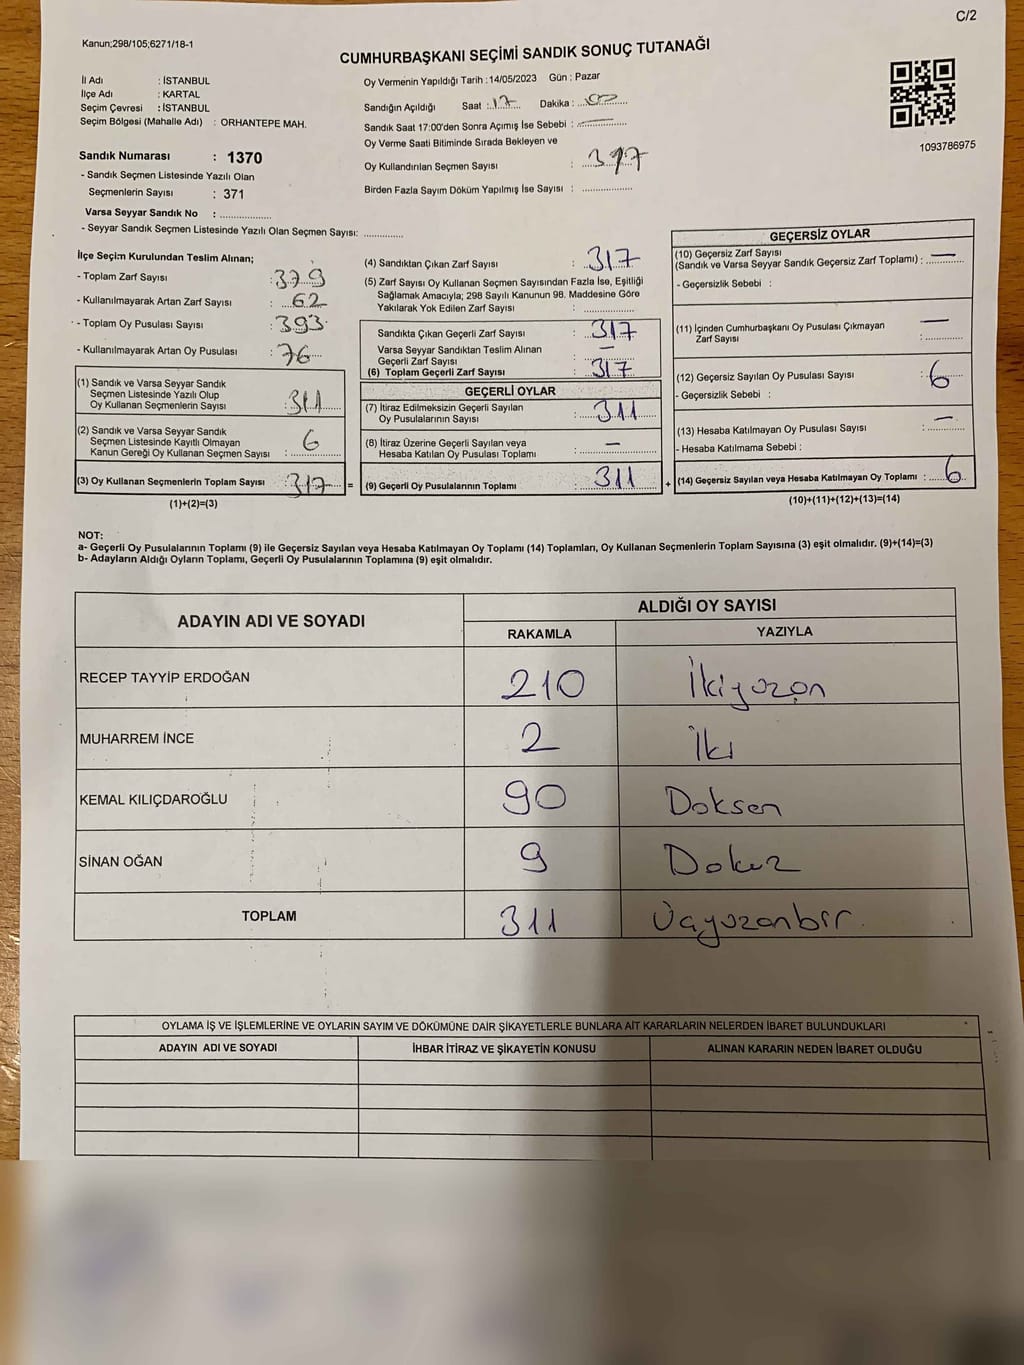 C/2
Kanun;298/105;6271/18-1
CUMHURBAŞKANI SEÇİMİ SANDIK SONUÇ TUTANAĞI
İl Adı : İSTANBUL
İlçe Adı : KARTAL
Seçim Çevresi : İSTANBUL
Seçim Bölgesi (Mahalle Adı) : ORHANTEPE MAH.
Sandık Numarası : 1370
- Sandık Seçmen Listesinde Yazılı Olan
Seçmenlerin Sayısı : 371
Varsa Seyyar Sandık No : ....................
- Seyyar Sandık Seçmen Listesinde Yazılı Olan Seçmen Sayısı: ..............
Oy Vermenin Yapıldığı Tarih : 14/05/2023 Gün : Pazar
Sandığın Açıldığı Saat : 17 Dakika : 00
Sandık Saat 17:00'den Sonra Açımış İse Sebebi : —
Oy Verme Saati Bitiminde Sırada Bekleyen ve
Oy Kullandırılan Seçmen Sayısı : 317
Birden Fazla Sayım Döküm Yapılmış İse Sayısı : ....................
1093786975
İlçe Seçim Kurulundan Teslim Alınan;
- Toplam Zarf Sayısı : 379
- Kullanılmayarak Artan Zarf Sayısı : 62
- Toplam Oy Pusulası Sayısı : 393
- Kullanılmayarak Artan Oy Pusulası : 76
(1) Sandık ve Varsa Seyyar Sandık
Seçmen Listesinde Yazılı Olup
Oy Kullanan Seçmenlerin Sayısı : 311
(2) Sandık ve Varsa Seyyar Sandık
Seçmen Listesinde Kayıtlı Olmayan
Kanun Gereği Oy Kullanan Seçmen Sayısı : 6
(3) Oy Kullanan Seçmenlerin Toplam Sayısı : 317 =
(1)+(2)=(3)
(4) Sandıktan Çıkan Zarf Sayısı : 317
(5) Zarf Sayısı Oy Kullanan Seçmen Sayısından Fazla İse, Eşitliği
Sağlamak Amacıyla; 298 Sayılı Kanunun 98. Maddesine Göre
Yakılarak Yok Edilen Zarf Sayısı : ....................
Sandıkta Çıkan Geçerli Zarf Sayısı : 317
Varsa Seyyar Sandıktan Teslim Alınan
Geçerli Zarf Sayısı : —
(6) Toplam Geçerli Zarf Sayısı : 317
GEÇERLİ OYLAR
(7) İtiraz Edilmeksizin Geçerli Sayılan
Oy Pusulalarının Sayısı : 311
(8) İtiraz Üzerine Geçerli Sayılan veya
Hesaba Katılan Oy Pusulası Toplamı : —
(9) Geçerli Oy Pusulalarının Toplamı : 311 +
GEÇERSİZ OYLAR
(10) Geçersiz Zarf Sayısı
(Sandık ve Varsa Seyyar Sandık Geçersiz Zarf Toplamı) : —
- Geçersizlik Sebebi :
(11) İçinden Cumhurbaşkanı Oy Pusulası Çıkmayan
Zarf Sayısı : —
(12) Geçersiz Sayılan Oy Pusulası Sayısı : 6
- Geçersizlik Sebebi :
(13) Hesaba Katılmayan Oy Pusulası Sayısı : —
- Hesaba Katılmama Sebebi :
(14) Geçersiz Sayılan veya Hesaba Katılmayan Oy Toplamı : 6
(10)+(11)+(12)+(13)=(14)
NOT:
a- Geçerli Oy Pusulalarının Toplamı (9) ile Geçersiz Sayılan veya Hesaba Katılmayan Oy Toplamı (14) Toplamları, Oy Kullanan Seçmenlerin Toplam Sayısına (3) eşit olmalıdır. (9)+(14)=(3)
b- Adayların Aldığı Oyların Toplamı, Geçerli Oy Pusulalarının Toplamına (9) eşit olmalıdır.
ADAYIN ADI VE SOYADI ALDIĞI OY SAYISI
RAKAMLA YAZIYLA
RECEP TAYYİP ERDOĞAN 210 İkiyüzon
MUHARREM İNCE 2 İki
KEMAL KILIÇDAROĞLU 90 Doksan
SİNAN OĞAN 9 Dokuz
TOPLAM 311 Üçyüzonbir
OYLAMA İŞ VE İŞLEMLERİNE VE OYLARIN SAYIM VE DÖKÜMÜNE DAİR ŞİKAYETLERLE BUNLARA AİT KARARLARIN NELERDEN İBARET BULUNDUKLARI
ADAYIN ADI VE SOYADI İHBAR İTİRAZ VE ŞİKAYETİN KONUSU ALINAN KARARIN NEDEN İBARET OLDUĞU